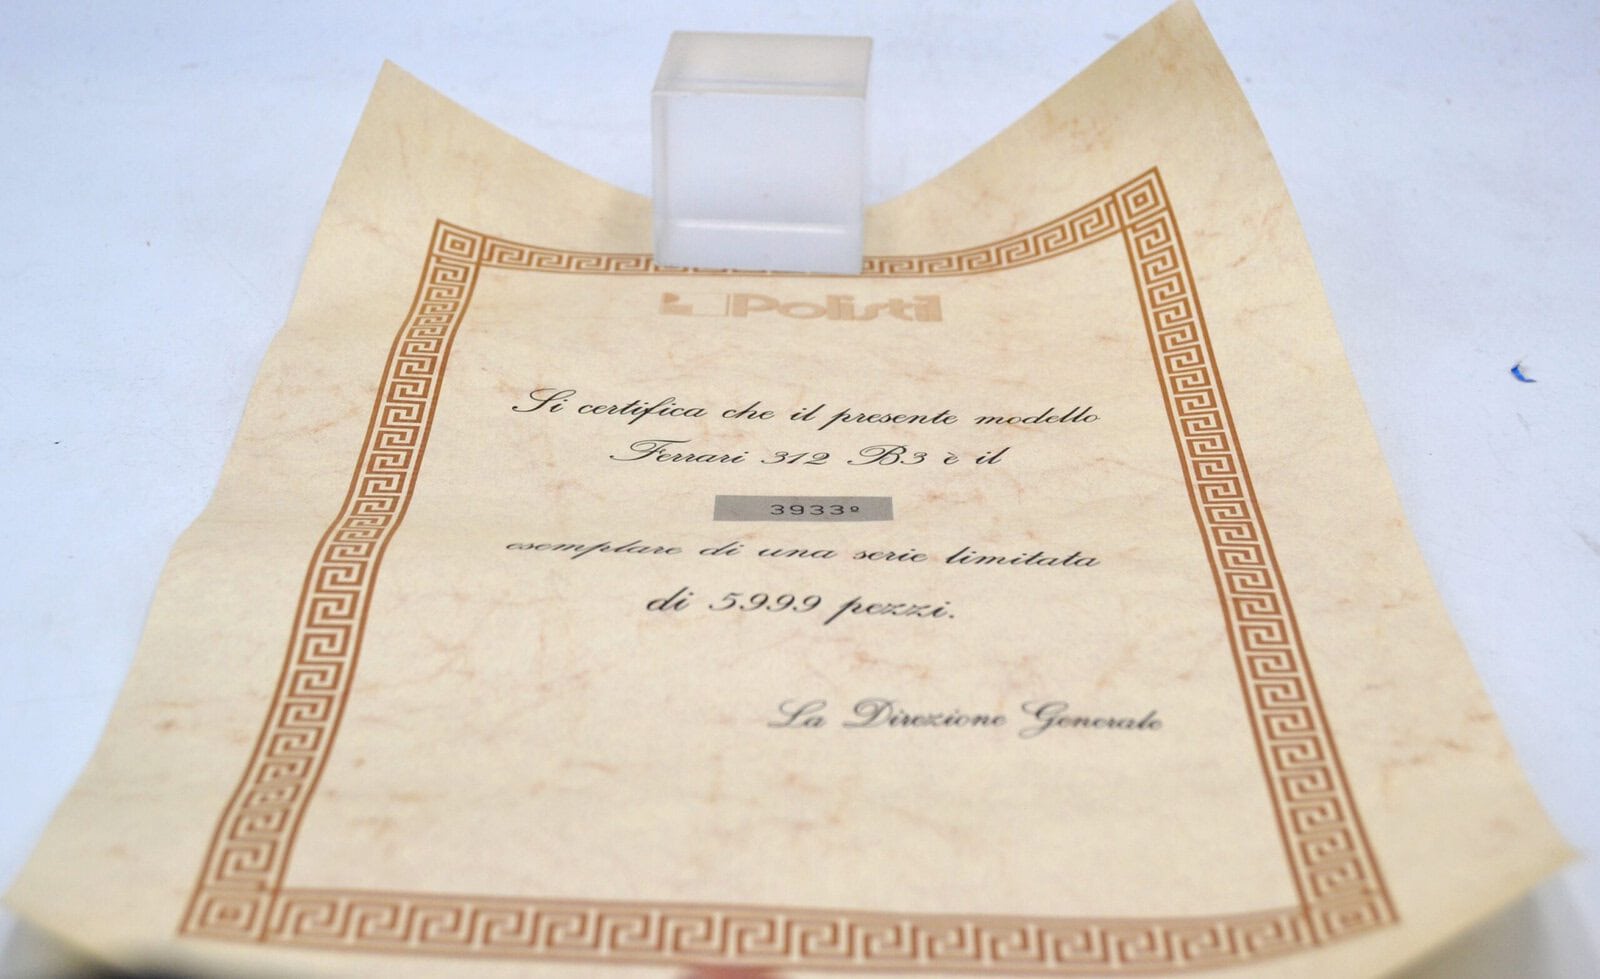 Polistil
Si certifica che il presente modello
Ferrari 312 B3 è il
3933º
esemplare di una serie limitata
di 5999 pezzi.
La Direzione Generale